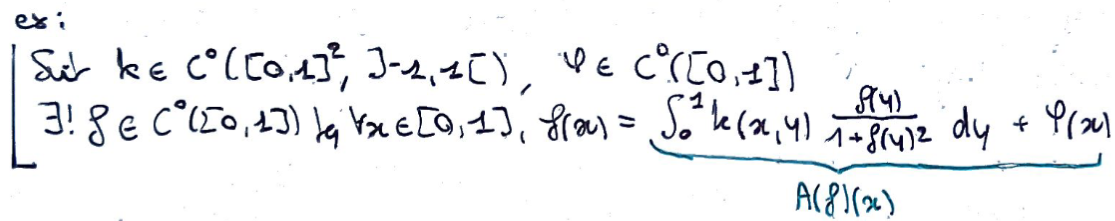 ex :
Soit k ∈ C°([0,1]², ]-1,1[), φ ∈ C°([0,1])
∃! f ∈ C°([0,1]) tq ∀x ∈ [0,1], f(x) = ∫₀¹ k(x,y) f(y)/(1+f(y)²) dy + φ(x)
A(f)(x)